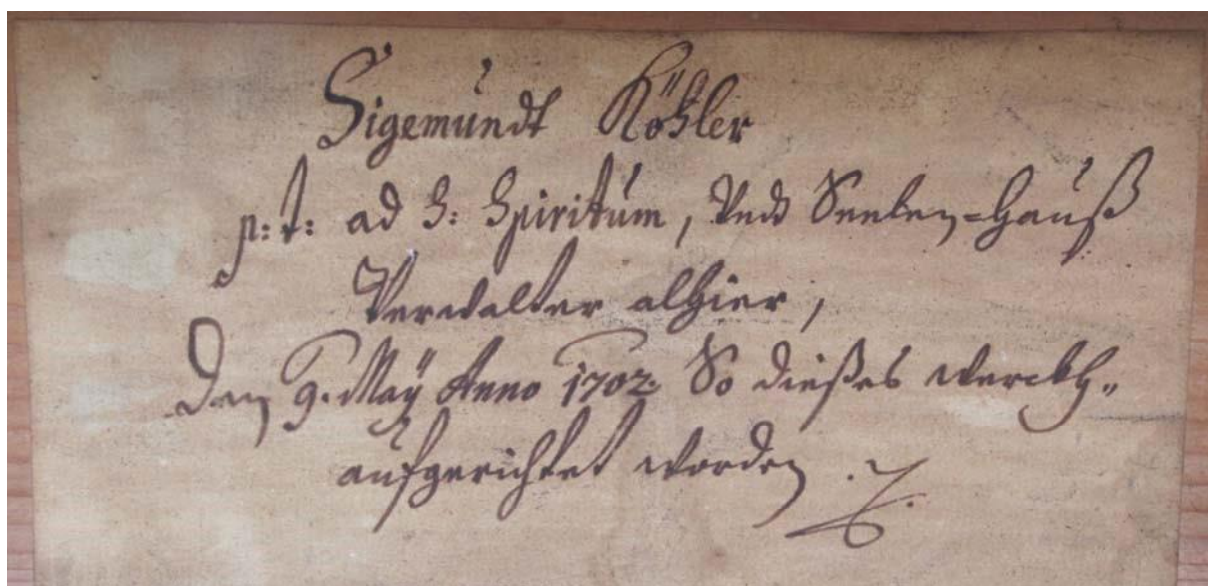 Sigemundt Köhler
p: t: ad S: Spiritum, Undt Seelen=Hauß
Verwalter alhier,
Den 9. Maÿ Anno 1702. So dießes werckh„
aufgerichtet worden